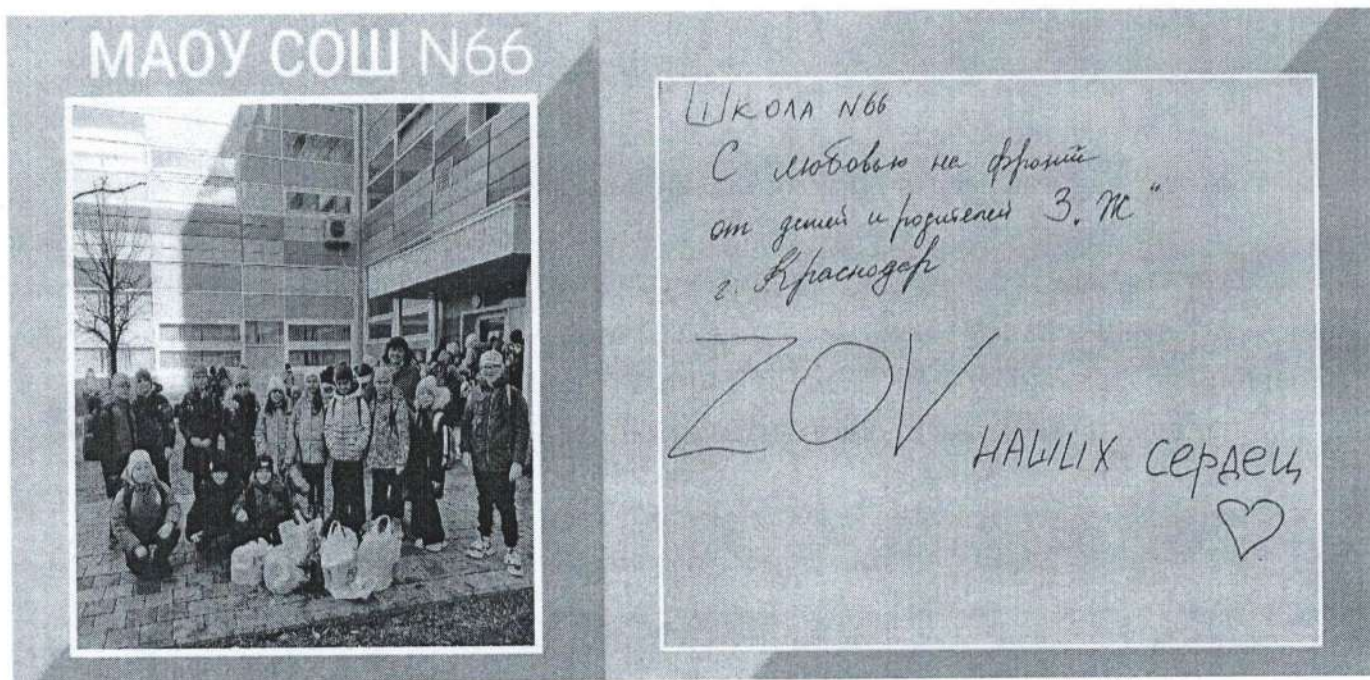 МАОУ СОШ N66
Школа N66
С любовью на фронт
от детей и родителей 3 „Ж“
г. Краснодар
ZOV
НАШИХ сердец